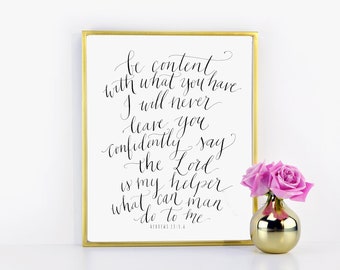 be content
with what you have
I will never
leave you
confidently say
the Lord
is my helper
what can man
do to me
HEBREWS 13:5,6